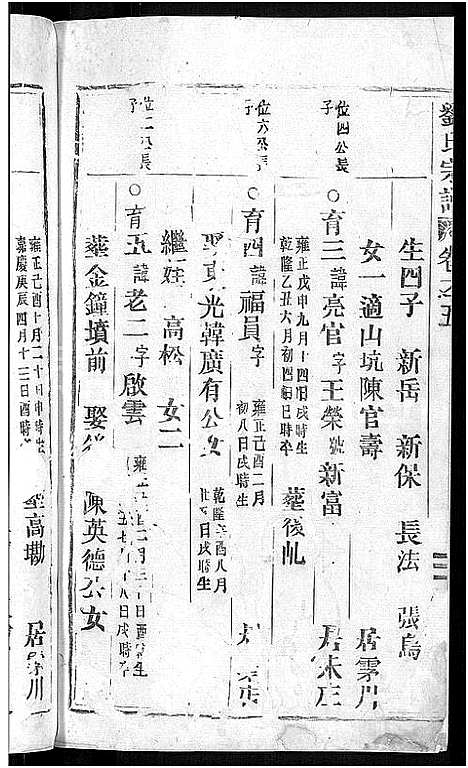 劉氏宗譜 卷之五
生四子 新岳 新保 長法 張烏
女一適山坑陳官壽 居雩川
位四公長子
○育三諱亮官字王榮號新富 居朱庄
雍正戊申九月十四日戌時生
乾隆乙丑六月初四日巳時卒 葬後乢
位六公長子
○育四諱福員字 雍正己酉二月初八日戌時生
娶東光韓廣有公女 乾隆辛酉八月廿五日戌時生
繼娃高松 女二
位二公長子
○育五諱老二字啟雲
二月二十日酉時生
八日戌時卒
葬金鐘墳前 娶 陳英德公女
雍正己酉十月二十日申時生
嘉慶庚辰四月十三日酉時
葬高墈 居 川